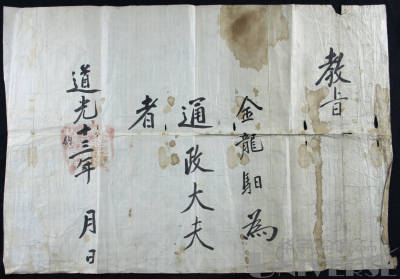 教旨
金龍馹為
通政大夫
者
道光十三年 月 日
UNIVERSE